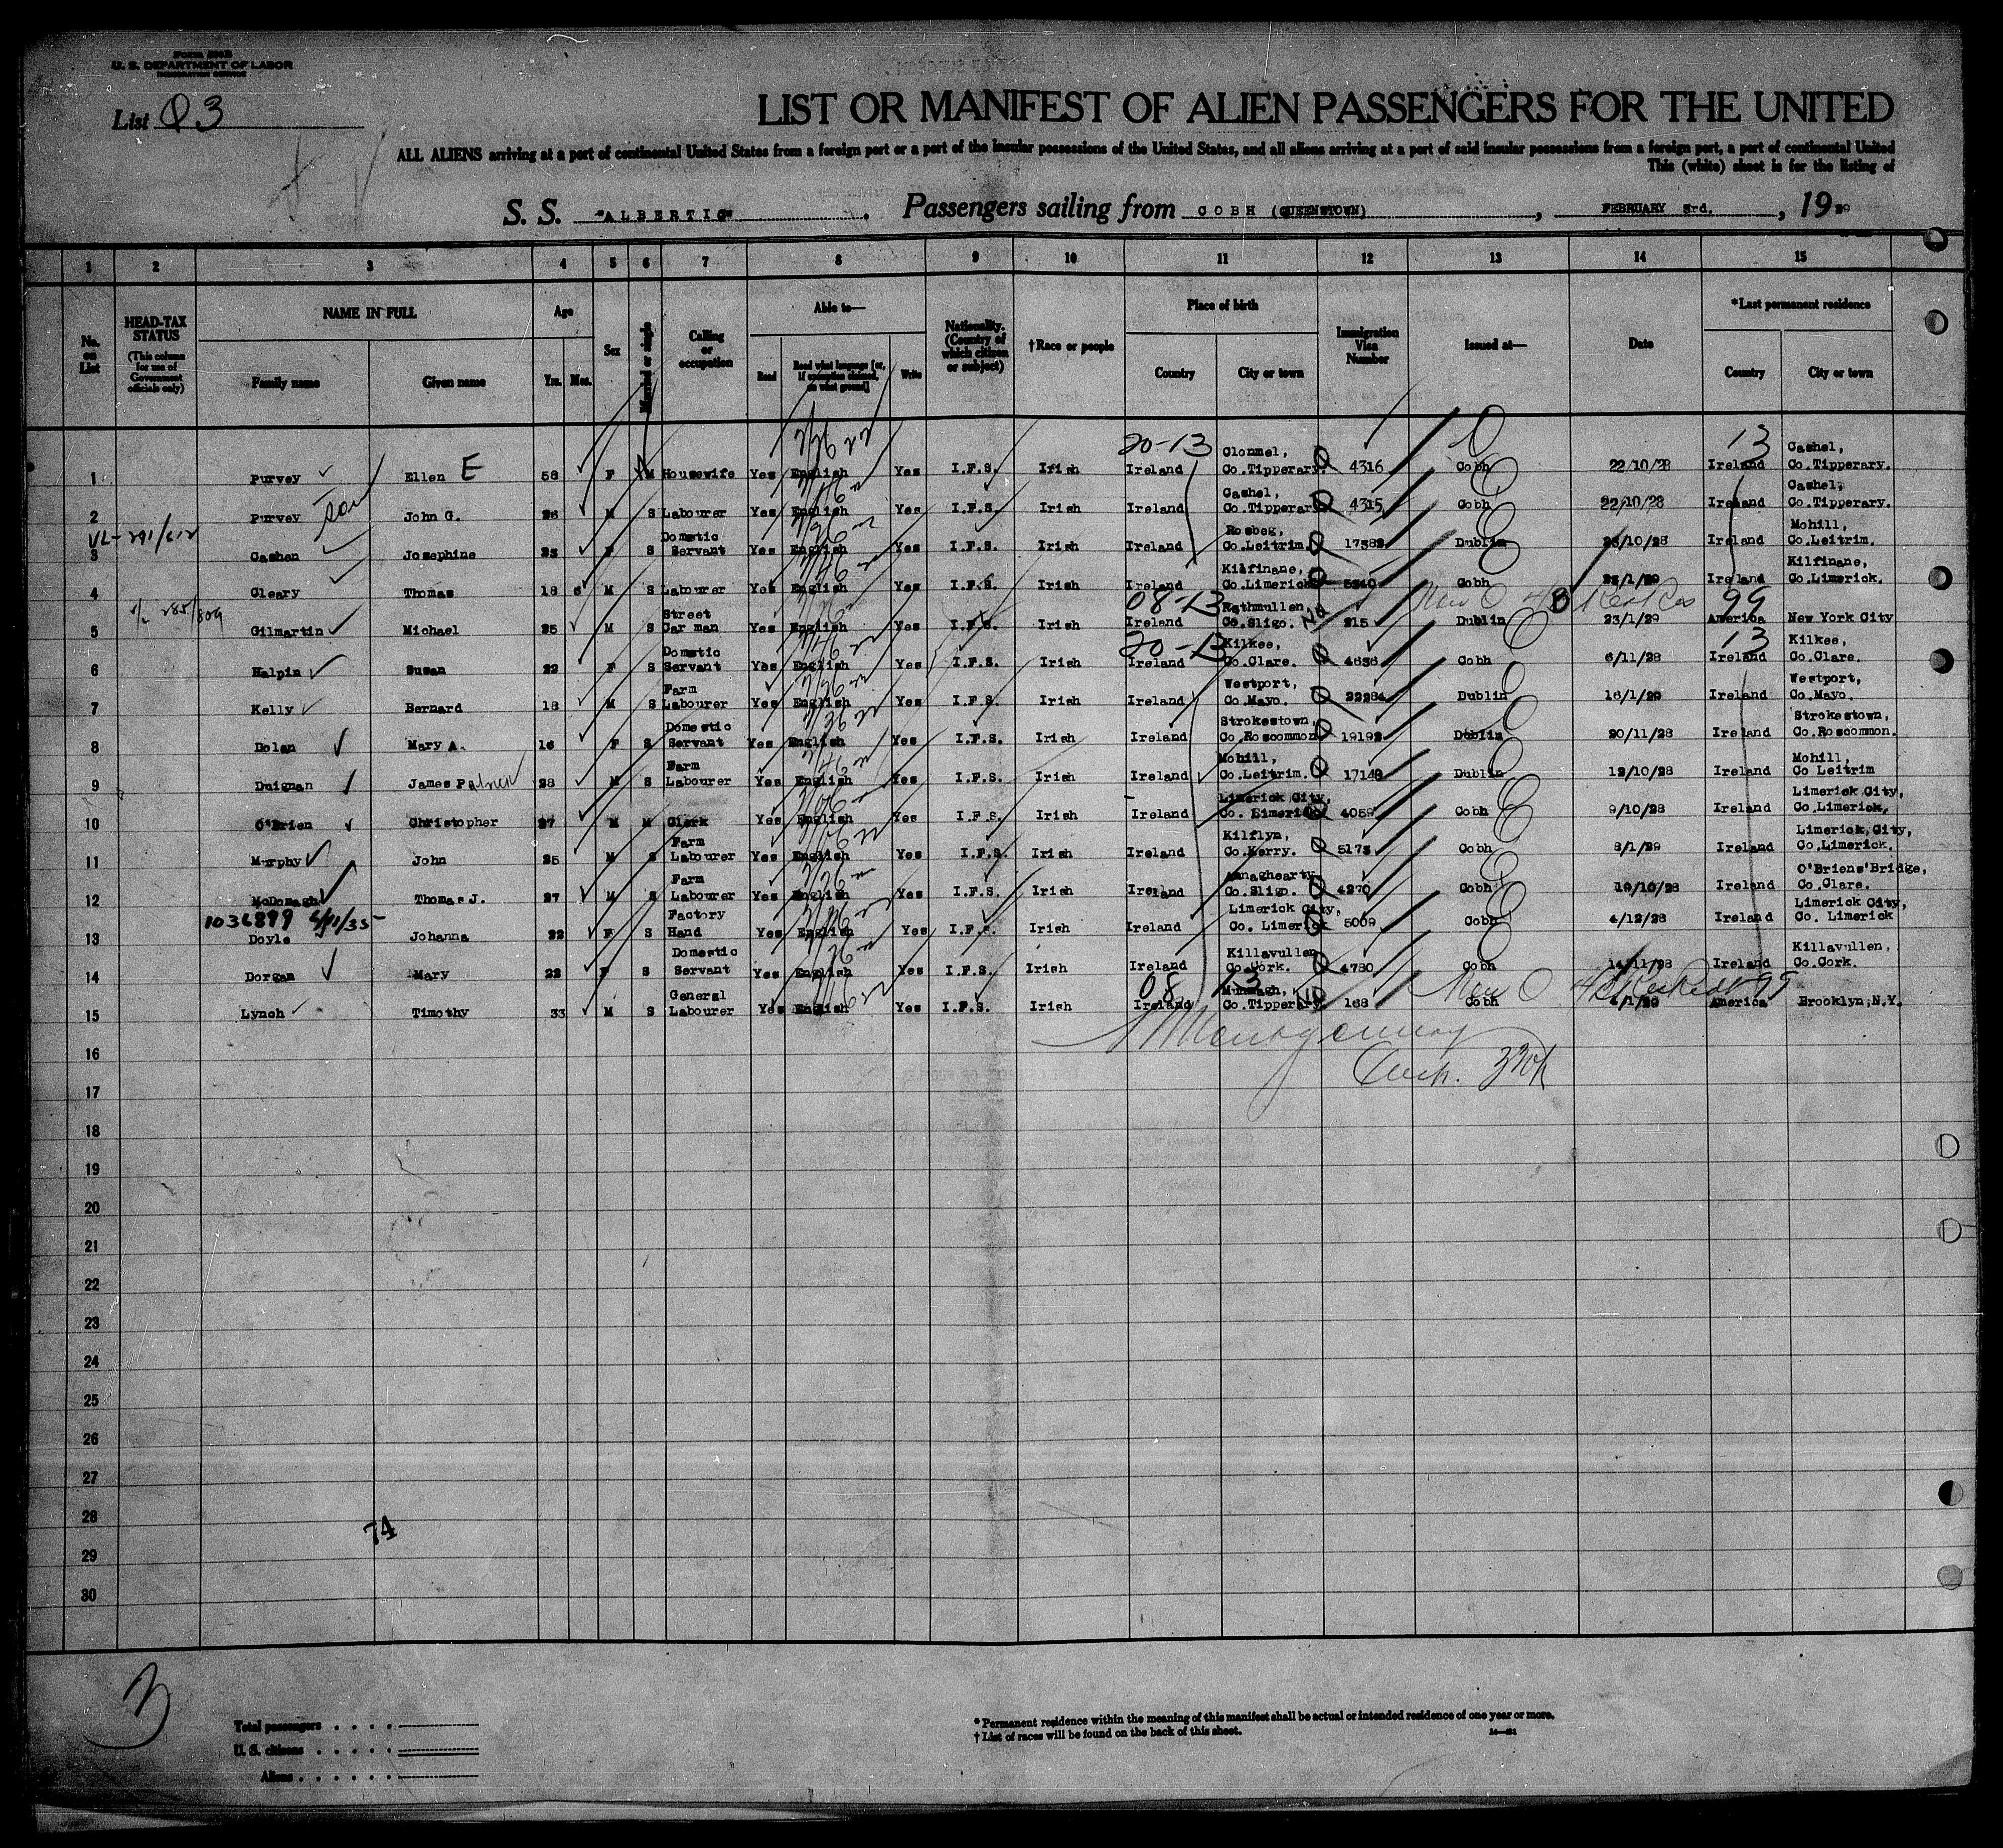 Form 500B
U. S. DEPARTMENT OF LABOR
IMMIGRATION SERVICE
List Q3
LIST OR MANIFEST OF ALIEN PASSENGERS FOR THE UNITED
ALL ALIENS arriving at a port of continental United States from a foreign port or a port of the insular possessions of the United States, and all aliens arriving at a port of said insular possessions from a foreign port, a port of continental United
This (white) sheet is for the listing of
S. S. "ALBERTIC". Passengers sailing from COBH (QUEENSTOWN), FEBRUARY 3rd., 1929
1 2 3 4 5 6 7 8 9 10 11 12 13 14 15
No. on List
HEAD-TAX STATUS (This column for use of Government officials only)
NAME IN FULL Family name Given name
Age Yrs. Mos.
Sex
Married or single
Calling or occupation
Able to— Read Read what language [or, if exemption claimed, on what ground] Write
Nationality. (Country of which citizen or subject)
†Race or people
Place of birth Country City or town
Immigration Visa Number
Issued at—
Date
*Last permanent residence Country City or town
20-13 13
1 Purvey Ellen E 58 F M Housewife Yes English Yes I.F.S. Irish Ireland Clonmel, Co.Tipperary. 4316 Cobh 22/10/28 Ireland Cashel, Co.Tipperary.
2 Purvey son John G. 26 M S Labourer Yes English Yes I.F.S. Irish Ireland Cashel, Co.Tipperary 4315 Cobh 22/10/28 Ireland Cashel, Co.Tipperary.
VL-291/612
3 Cashen Josephine 23 F S Domestic Servant Yes English Yes I.F.S. Irish Ireland Rosbeg, Co.Leitrim. 17382 Dublin /10/28 Ireland Mohill, Co.Leitrim.
4 Cleary Thomas 18 6 M S Labourer Yes English Yes I.F.S. Irish Ireland Kilfinane, Co.Limerick 5340 Cobh /1/29 Ireland Kilfinane, Co.Limerick.
08-13 99
5 Gilmartin Michael 25 M S Street Car man Yes English Yes I.F.S. Irish Ireland Rathmullen, Co.Sligo. 215 Dublin 23/1/29 America New York City
20-13 13
6 Halpin Susan 22 F S Domestic Servant Yes English Yes I.F.S. Irish Ireland Kilkee, Co.Clare. 4636 Cobh 6/11/28 Ireland Kilkee, Co.Clare.
7 Kelly Bernard 18 M S Farm Labourer Yes English Yes I.F.S. Irish Ireland Westport, Co.Mayo. 22284 Dublin 16/1/29 Ireland Westport, Co.Mayo.
8 Dolan Mary A. 16 F S Domestic Servant Yes English Yes I.F.S. Irish Ireland Strokestown, Co.Roscommon 19192 Dublin 20/11/28 Ireland Strokestown, Co.Roscommon.
9 Duignan James Palmer 28 M S Farm Labourer Yes English Yes I.F.S. Irish Ireland Mohill, Co.Leitrim. 17148 Dublin 12/10/28 Ireland Mohill, Co Leitrim
10 O'Brien Christopher 27 M M Clerk Yes English Yes I.F.S. Irish Ireland Limerick City, Co. Limerick 4059 Cobh 9/10/28 Ireland Limerick City, Co.Limerick,
11 Murphy John 25 M S Farm Labourer Yes English Yes I.F.S. Irish Ireland Kilflyn, Co.Kerry. 5173 Cobh 8/1/29 Ireland Limerick, City, Co.Limerick.
12 McDonagh Thomas J. 27 M S Farm Labourer Yes English Yes I.F.S. Irish Ireland Annaghearty Co.Sligo. 4270 Cobh 19/10/28 Ireland O'Briens'Bridge, Co.Clare.
1036899
13 Doyle Johanna 22 F S Factory Hand Yes English Yes I.F.S. Irish Ireland Limerick City, Co. Limerick 5009 Cobh 4/12/28 Ireland Limerick City, Co. Limerick
14 Dorgan Mary 22 F S Domestic Servant Yes English Yes I.F.S. Irish Ireland Killavullen Co.Cork. 4780 Cobh 14/11/28 Ireland Killavullen, Co.Cork.
08 13 99
15 Lynch Timothy 33 M S General Labourer Yes English Yes I.F.S. Irish Ireland Co.Tipperary 168 Cobh /1/29 America Brooklyn,N.Y.
Montgomery
16
17
18
19
20
21
22
23
24
25
26
27
28
74
29
30
3
Total passengers
U. S. citizens
Aliens
* Permanent residence within the meaning of this manifest shall be actual or intended residence of one year or more.
† List of races will be found on the back of this sheet.